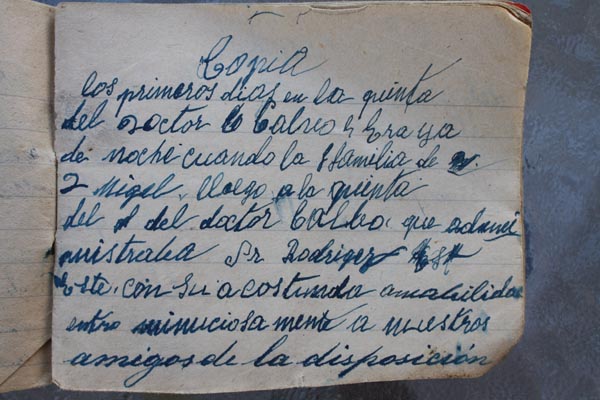 Copia
los primeros dias en la quinta
del Doctor Calvo Era ya
de noche cuando la familia de
Migel, llego a la quinta
del del doctor Calbo, que admi
nistraba Sr Rodrigez
Este, con su acostunda amabilidad
entro minuciosa mente a nuestros
amigos de la disposición